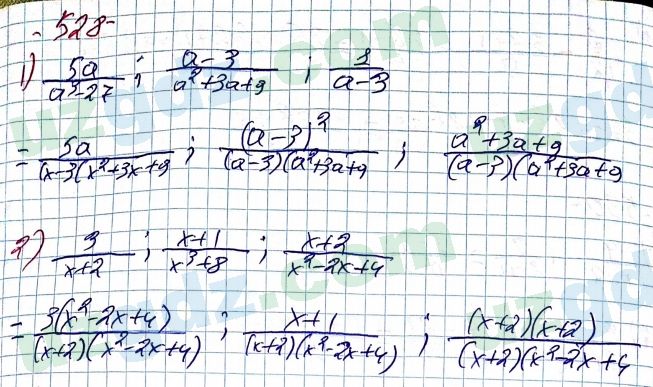 528-
1) 5a/(a³-27) ; (a-3)/(a²+3a+9) ; 1/(a-3)
= 5a/(x-3(x²+3x+9 ; (a-3)²/(a-3)(a²+3a+9 ; a²+3a+9/(a-3)(a²+3a+9
2) 3/(x+2) ; (x+1)/(x³+8) ; (x+2)/(x²-2x+4)
= 3(x²-2x+4)/(x+2)(x²-2x+4) ; x+1/(x+2)(x²-2x+4) ; (x+2)(x+2)/(x+2)(x²-2x+4
uzgdz.com